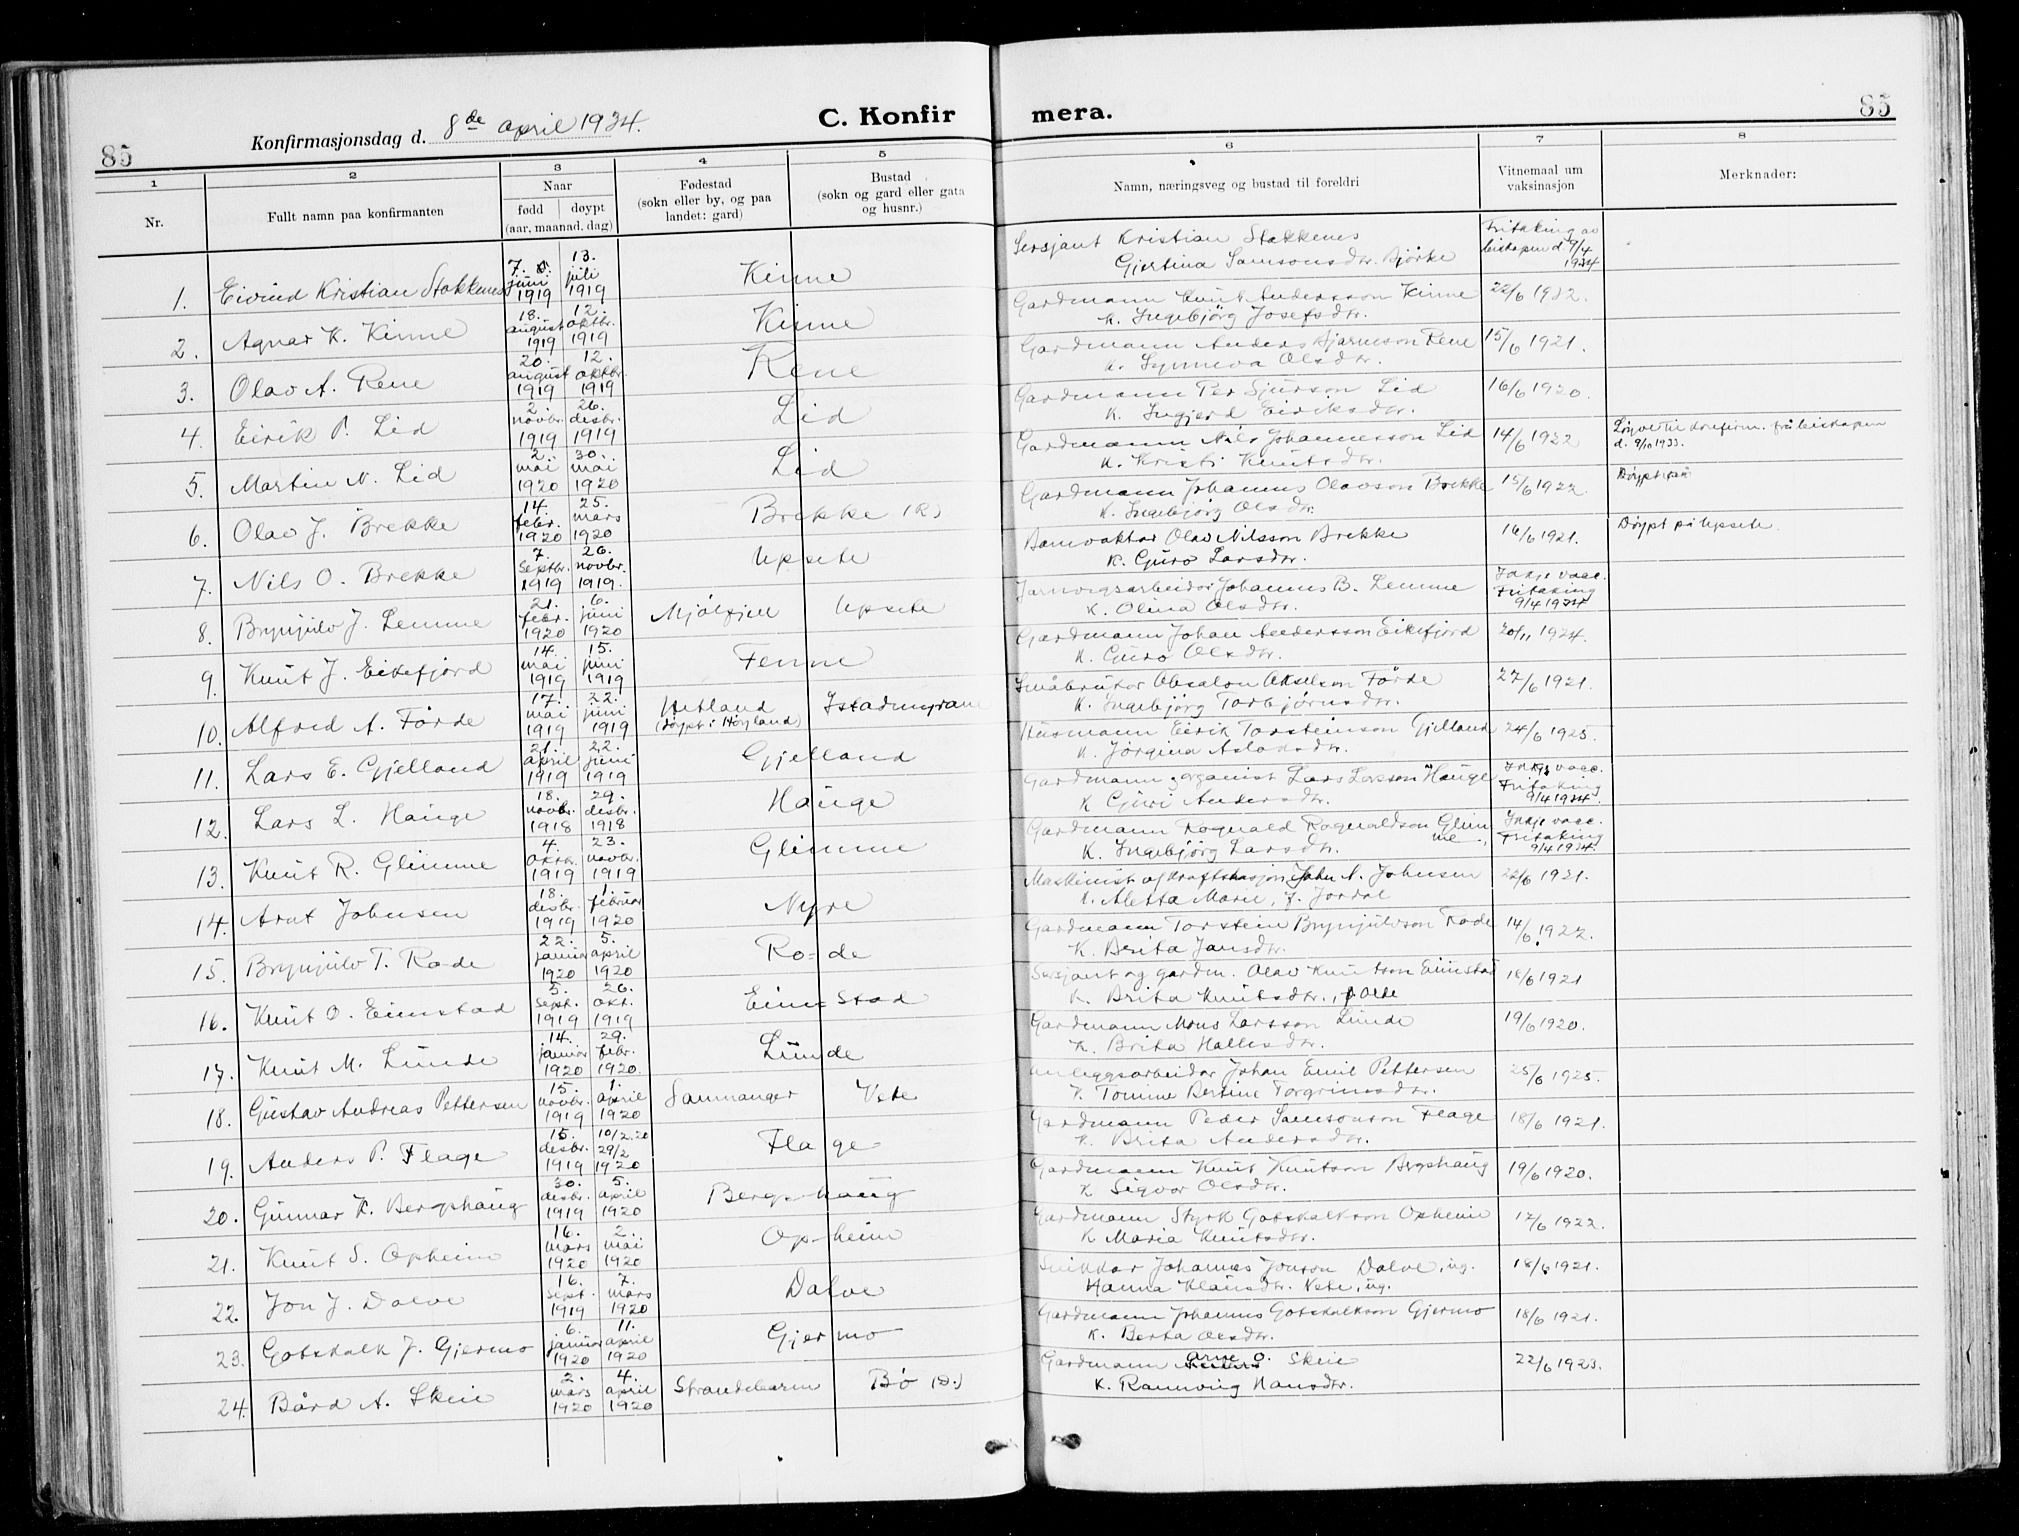 85
Konfirmasjonsdag d. 8de april 1934.
C. Konfirmera.
85
1 2 3 4 5 6 7 8
Nr. Fullt namn paa konfirmanten Naar fødd døypt (aar, maanad, dag) Fødestad (sokn eller by, og paa landet: gard) Bustad (sokn og gard eller gata og husnr.) Namn, næringsveg og bustad til foreldri Vitnemaal um vaksinasjon Merknader:
1. Eivind Kristian Stokkenes 7. juni 1919 13. juli 1919 Kinne Sersjant Kristian Stokkenes Fritaking av biskopen d. 9/4 1934
Gjertina Samsonsdtr. Bjørke
2. Agnar K. Kinne 18. august 1919 12. oktbr. 1919 Kinne Gardmann Knut Andersson Kinne 22/6 1932.
K. Ingebjörg Josefsdtr.
3. Olav A. Rene 20. august 1919 12. oktbr. 1919 Rene Gardmann Anders Bjarneson Rene 15/6 1921.
K. Synneva Olsdtr.
4. Eirik P. Lid 2. novbr. 1919 26. desbr. 1919 Lid Gardmann Per Sjurson Lid 16/6 1920.
K. Ingjerd Eiriksdtr.
5. Martin N. Lid 2. mai 1920 30. mai 1920 Lid Gardmann Nils Johannesson Lid 14/6 1922 Løyve til konfirm. frå biskopen d. 9/10 1933.
K. Kristi Knutsdtr.
6. Olav J. Brekke 14. febr. 1920 25. mars 1920 Brekke (R) Gardmann Johannes Olavson Brekke 15/6 1922.
K. Ingebjörg Olsdtr.
7. Nils O. Brekke 7. septbr. 1919 26. novbr. 1919. Upsete Banevaktar Olav Nilsson Brekke 16/6 1921. Døypt på Upsete.
K. Guro Larsdtr.
8. Brynjulv J. Lemme 21. febr. 1920 6. juni 1920 Mjölfjell Upsete Jarnvegsarbeidar Johannes B. Lemme Ikkje vacc. Fritaking 9/4 1934
K. Olina Olsdtr.
9. Knut J. Eikefjord 14. mai 1919 15. juni 1919 Fenne Gardmann Johan Andersson Eikefjord 20/11 1924.
K. Guro Olsdtr.
10. Alfred A. Förde 17. mai 1919 22. juni 1919 Hetland (døypt i Høyland) Istadmyrane Småbrukar Absalon Akselson Förde 27/6 1921.
K. Ingebjörg Torbjörnsdtr.
11. Lars E. Gjelland 21. april 1919 22. juni 1919 Gjelland Husmann Eirik Torsteinson Gjelland 24/6 1925.
K. Jörgina Asladsdtr.
12. Lars L. Hauge 18. novbr. 1918 29. desbr. 1918 Hauge Gardmann, organist Lars Larsson Hauge Ikkje vacc. Fritaking 9/4 1934.
K. Guri Andersdtr.
13. Knut R. Glimme 4. oktbr. 1919 23. novbr. 1919 Glimme Gardmann Rognald Rognaldson Glimme Ikkje vacc. Fritaking 9/4 1934.
K. Ingebjörg Larsdtr.
14. Arnt Johnsen 18. desbr. 1919 1. februar 1920 Nyre Maskinist v/ kraftstasjon John A. Johnsen 22/6 1921.
K. Aletta Marie, f. Jordal
15. Brynjulv T. Rode 22. januar 1920 5. april 1920 Rode Gardmann Torstein Brynjulvson Rode 14/6 1922.
K. Brita Jansdtr.
16. Knut O. Eimstad 5. sept. 1919 26. okt. 1919 Eimstad Sersjant og gardm. Olav Knutson Eimstad 18/6 1921
K. Brita Knutsdtr.
17. Knut M. Lunde 14. januar 1920 29. febr. 1920. Lunde Gardmann Mons Larsson Lunde 19/6 1920.
K. Brita Hallesdtr.
18. Gustav Andreas Pettersen 15. novbr. 1919 1. april 1920 Samnanger Vete Anleggsarbeidar Johan Emil Pettersen 25/6 1925.
K. Tomme Bertine Torgrimsdtr.
19. Anders P. Flage 15. desbr. 1919 10/2.20 29/2 1920 Flage Gardmann Peder Samsonson Flage 18/6 1921.
K. Brita Andersdtr.
20. Gunnar K. Bergshaug 30. desbr. 1919 5. april 1920 Bergshaug Gardmann Knut Knutson Bergshaug 19/6 1920.
K. Sigvor Olsdtr.
21. Knut S. Opheim 16. mars 1920 2. mai 1920 Opheim Gardmann Styrk Gotskalkson Opheim 12/6 1922.
K. Maria Knutsdtr.
22. Jon J. Dalve 16. sept. 1919 7. mars 1920 Dalve Snikkar Johannes Jonson Dalve, ug. 18/6 1921.
Hanna Klausdtr. Vete, ug.
23. Gotskalk J. Gjermo 6. januar 1920 11. april 1920 Gjermo Gardmann Johannes Gotskalkson Gjermo 18/6 1921.
K. Berta Olsdtr.
24. Bård A. Skeie 2. mars 1920 4. april 1920 Strandebarm Bø (D.) Gardmann Arne O. Skeie 22/6 1923.
K. Rannveig Hansdtr.